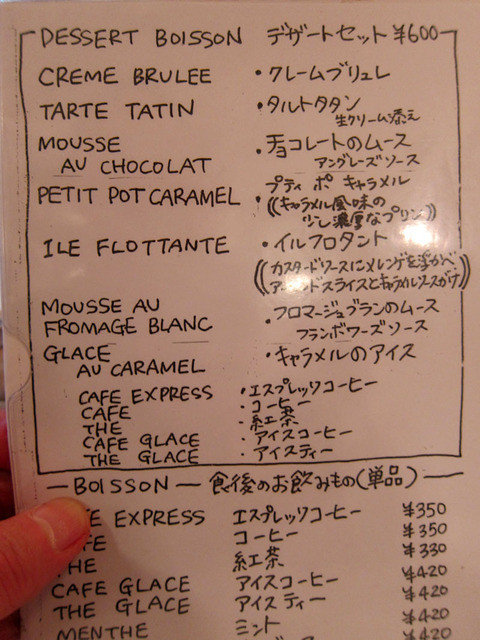 DESSERT BOISSON デザートセット ¥600
CREME BRULEE ・クレームブリュレ
TARTE TATIN ・タルトタタン
生クリーム添え
MOUSSE
AU CHOCOLAT ・チョコレートのムース
アングレーズソース
PETIT POT CARAMEL プティ ポ キャラメル
((キャラメル風味の
少し濃厚なプリン))
ILE FLOTTANTE ・イルフロタント
((カスタードソースにメレンゲを浮かべ、
スライスとキャラメルソースがけ))
MOUSSE AU
FROMAGE BLANC ・フロマージュブランのムース
フランボワーズソース
GLACE
AU CARAMEL ・キャラメルのアイス
CAFE EXPRESS ・エスプレッソコーヒー
CAFE ・コーヒー
THE ・紅茶
CAFE GLACE ・アイスコーヒー
THE GLACE ・アイスティー
BOISSON 食後のお飲みもの(単品)
EXPRESS エスプレッソコーヒー ¥350
コーヒー ¥350
HE 紅茶 ¥330
CAFE GLACE アイスコーヒー ¥420
THE GLACE アイスティー ¥420
MENTHE ミント ¥420